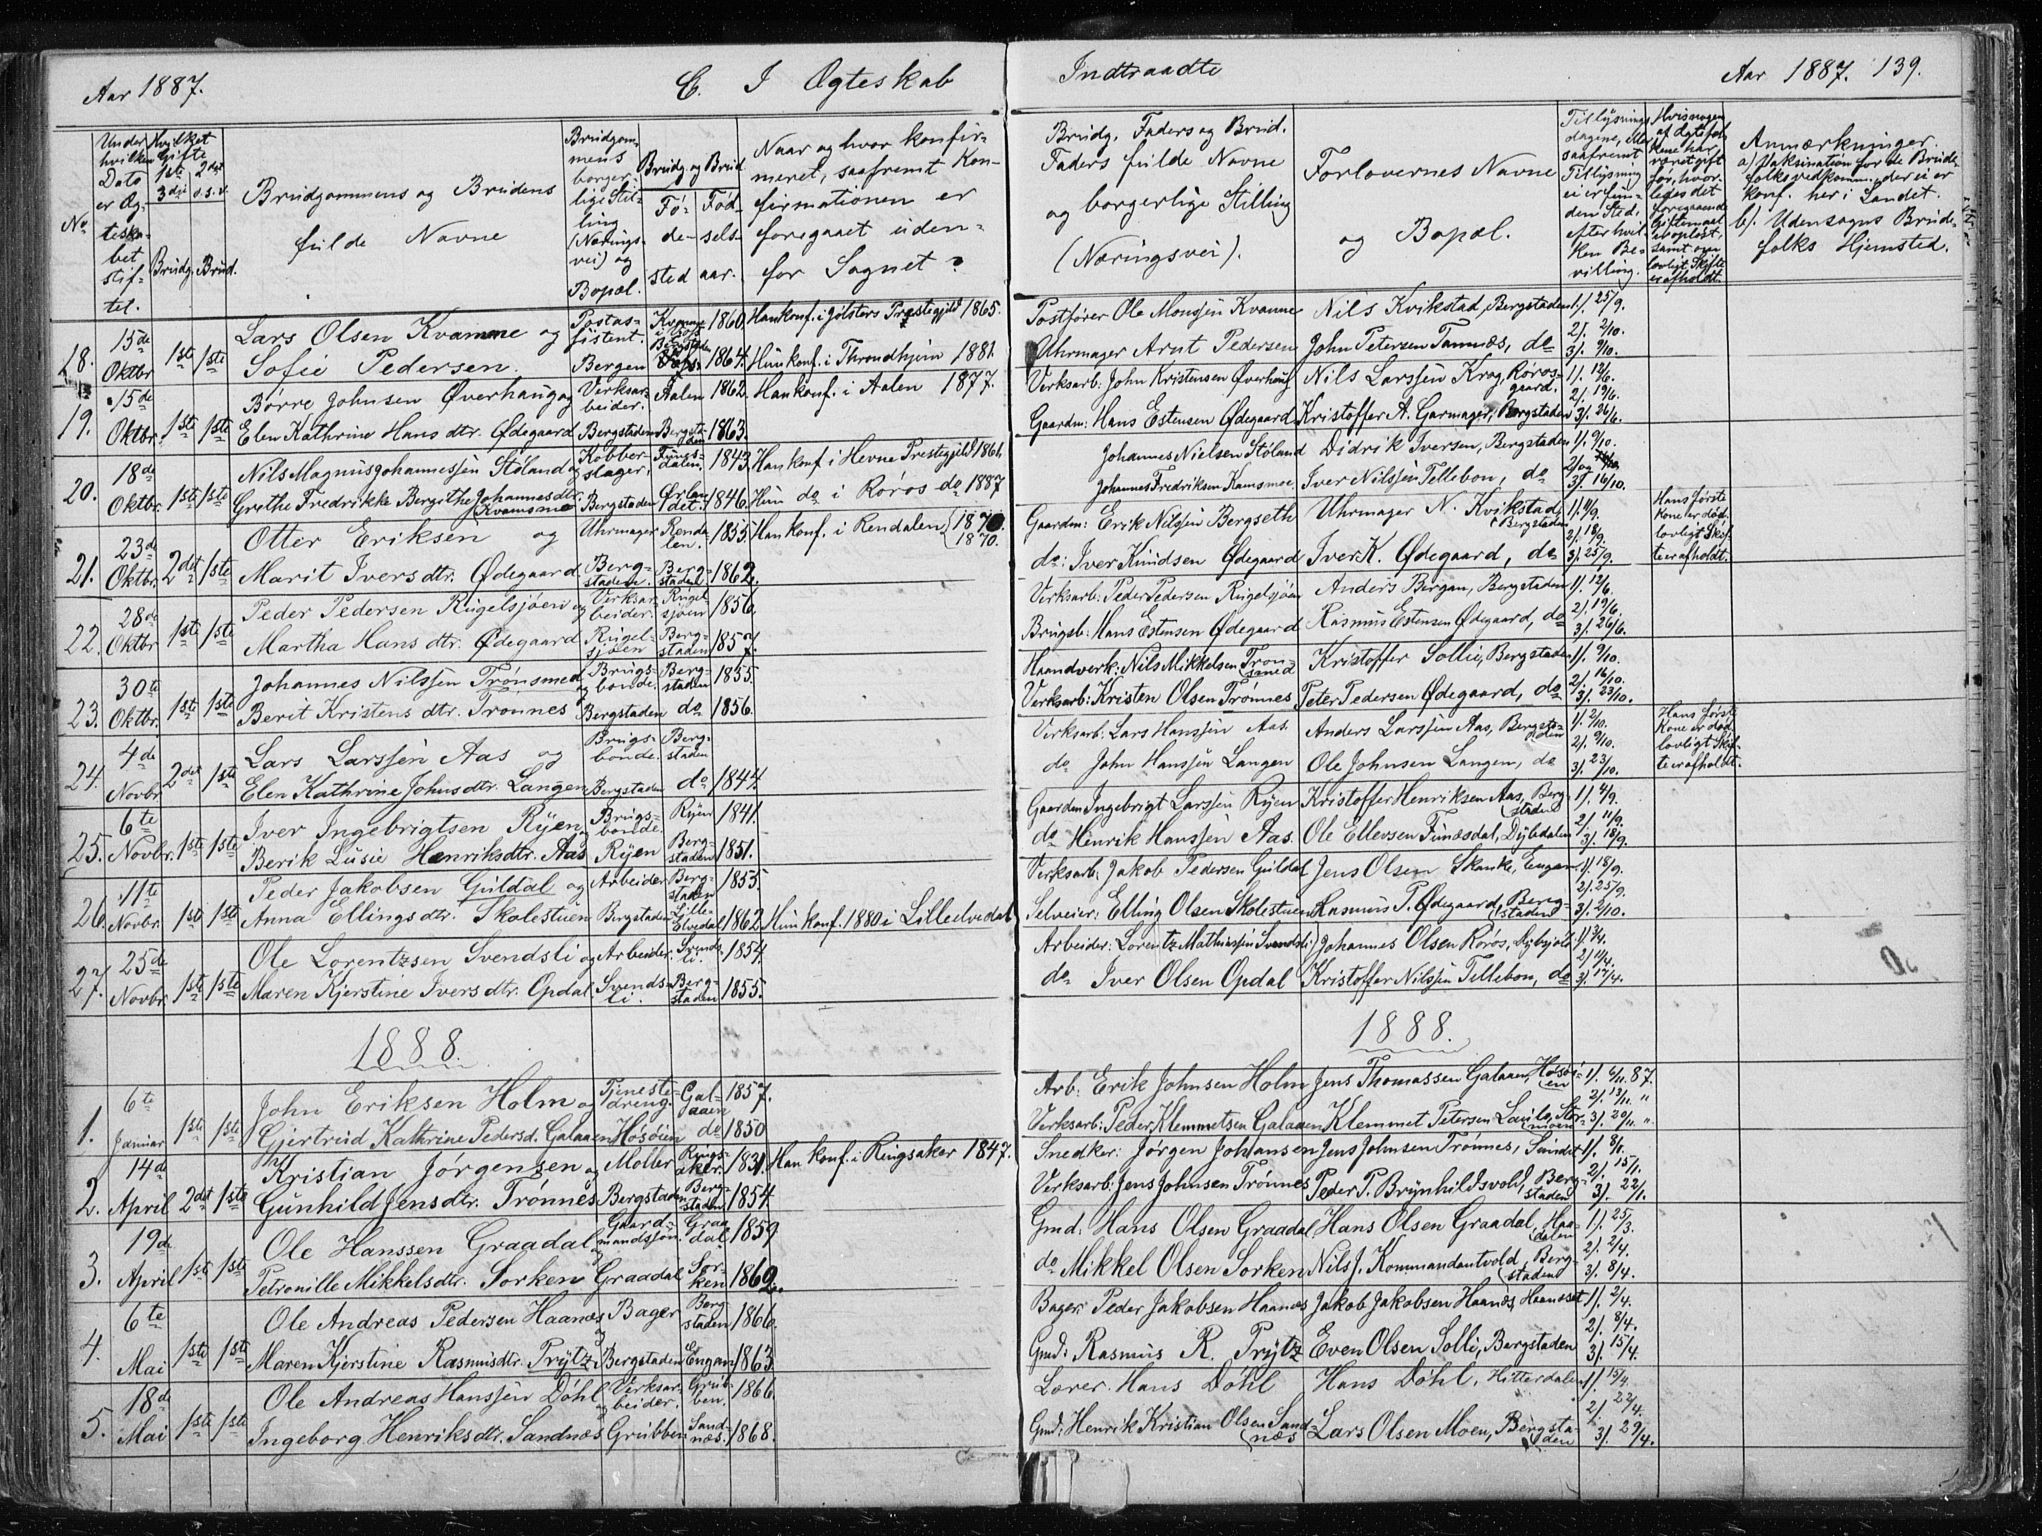 Aar 1887.
C. I Ægteskab
Indtraadte
Aar 1887. 139.
No.
Under hvilken Dato er Ægteskabet stiftet.
Hvilket Gifte
1ste 2det
3die o.s.v.
Brudg. Brud.
Brudgommens og Brudens
fulde Navne
Brudgommens borgerlige Stilling (Næringsvei) og Bopæl.
Brudg. og Brud
Fødested
Fødselsaar.
Naar og hvor konfirmeret, saafremt Konfirmationen er foregaaet udenfor Sognet?
Brudg. Faders og Brud. Faders fulde Navne
og borgerlige Stilling
(Næringsvei).
Forlovernes Navne
og Bopæl.
Tillysningsdagene, eller saafremt Tillysning ei er funden Sted, efter hvilken Bevilling.
Hvis nogen af Ægtefolkene har været gift før, hvorledes det foregaaende Giftermaal er opløst, samt om lovligt Skifte er afholdt.
Anmærkninger.
a) Vaksination for de Brudefolks vedkomm., der ei er konf. her i Landet.
b). Udensogns Brudefolks Hjemsted.
18. 15de Oktbr 1ste 1ste Lars Olsen Kvamme og Postassistent. Kvamme 1860. Han konf. i Jølsters Prestegjeld 1865. Postfører Ole Monssen Kvamme Nils Kvikstad, Bergstaden 1). 25/9.
Sofie Pedersen. Bergen 1864. Hun konf. i Throndhjem 1881. Uhrmager Arnt Pedersen John Petersen Tamnæs, do 2). 2/10. 3). 9/10.
19. 15de Oktbr. 1ste 1ste Børre Johnsen Øverhaug og Verksarbeider. Aalen 1862. Han konf. i Aalen 1877. Verksarb: John Kristensen Øverhaug Nils Larssen Krog, Rørosgaard. 1). 12/6. 2). 19/6.
Elen Kathrine Hansdtr. Ødegaard Bergstaden Bergstaden 1863. Gaardm: Hans Estensen Ødegaard Kristoffer A. Garmager, Bergstaden 3). 26/6.
20. 18de Oktbr. 1ste 1ste Nils Magnus Johannessen Støland og Kobberslager, 1843. Han konf i Hevne Prestegjeld 1861. Johannes Nielsen Støland Didrik Iversen, Bergstaden 1). 9/10.
Grethe Fredrikke Bergithe Johannesdtr. Kvamsmo Bergstaden Ørlandet. 1846. Hun do i Røros do 1887 Johannes Fredriksen Kamsmoe, Iver Nilssen Tellebon, do 2) og 3) 16/10.
21. 23de Oktbr. 2det 1ste Otter Eriksen og Uhrmager Rendalen. 1855. Han konf. i Rendalen 1870. 1870. Gaardm: Erik Nilssen Bergseth Uhrmager N. Kvikstad, Bergstaden 1). 2). 18/9. Hans første Kone er død. lovligt Skifte er afholdt.
Marit Iversdtr. Ødegaard Bergstaden. Bergstaden 1862. do: Iver Knudsen Ødegaard Iver K. Ødegaard, do 3). 25/9.
22. 28de Oktbr 1ste 1ste Peder Pedersen Rugelsjøen og Verksarbeider. Rugelsjøen 1856. Verksarb: Peder Pedersen Rugelsjøen Anders Bergan, Bergstaden 1). 12/6. 2). 19/6.
Martha Hansdtr. Ødegaard Rugelsjøen Bergstaden 1857. Brugsb: Hans Estensen Ødegaard Rasmus Estensen Ødegaard, do 3). 26/6.
23. 30te Oktbr. 1ste 1ste Johannes Nilssen Trønsmed og Brugsbonde. Bergstaden 1855. Haandverk: Nils Mikkelsen Trønsmed Kristoffer Sollie, Bergstaden 1). 9/10. 2). 16/10.
Berit Kristensdtr. Trønnes Bergstaden do 1856. Verksarb: Kristen Olsen Trønnes Peter Pedersen Ødegaard, do 3). 23/10.
24. 4de Novbr. 2det 1ste Lars Larssen Aas og Brugsbonde. Bergstaden Verksarb: Lars Hanssen Aas. Anders Larssen Aas, Bergstaden 1). 2/10. 2). 9/10. Hans første Kone er død, lovligt Skifte er afholdt.
Elen Kathrine Johnsdtr. Langen Bergstaden do 1844. do John Hanssen Langen Ole Johnsen Langen, do 3). 23/10.
25. 6te Novbr. 1ste 1ste Iver Ingebrigtsen Ryen og Brugsbonde. Ryen 1841. Gaardm Ingebrigt Larssen Ryen Kristoffer Henriksen Aas, Bergstaden 1). 4/9. 2). 11/9.
Berik Lusie Henriksdtr. Aas Ryen Bergstaden 1851. do Henrik Hanssen Aas. Ole Ellevsen Funæsdal, Dybdalen 3). 18/9.
26. 11te Novbr. 1ste 1ste Peder Jakobsen Guldal og Arbeider Bergstaden 1855. Verksarb: Jakob Pedersen Guldal Jens Olsen Skanke, Engan 1). 18/9. 2). 25/9.
Anna Ellingsdtr. Skolestuen Bergstaden Lille-Elvedal 1862. Hun konf. 1880 i Lilleelvedal, Selveier: Elling Olsen Skolestuen Rasmus P. Ødegaard, Bergstaden 3). 2/10.
27. 25de Novbr. 1ste 1ste Ole Lorentzsen Svendsli og Arbeider. Svendsli. 1854. Arbeider: Lorentz Mathiassen Svendsli Johannes Olsen Røros, 1). 3/4. 2)
Maren Kjerstine Iversdtr. Opdal Svendsli. Bergstaden 1855. do Iver Olsen Opdal Kristoffer Nilssen Tellebon, do 3). 17/4.
1888.
1888.
1. 6te Januar 1ste 1ste John Eriksen Holm og Tjenestedreng. Galaaen 1857. Arb: Erik Johnsen Holm Jens Thomassen Galaaen, Høsøien 1). 6/11. 87. 2). 13/11. "
Gjertrud Kathrine Pedersd. Galaaen Høsøien do 1850 Verksarb: Peder Klemmetsen Galaaen Klemmet Petersen Stormoen 3). 20/11. ".
2. 14d April 2det 1ste Kristian Jørgensen og Møller Ringsaker. 1831. Han konf. i Ringsaker 1847. Snedker: Jørgen Johansen Jens Johnsen Trønnes, Sundet 1). 8/1. 2). 15/1.
Gunhild Jensdtr. Trønnes Bergstaden Bergstaden 1854. Verksarb: Jens Johnsen Trønnes Peder P. Brynhildsvold, Bergstaden 3). 22/1.
3. 19de April 1ste 1ste Ole Hanssen Graadal og Gaardmandssøn. Graadal 1859 Gmd: Hans Olsen Graadal Hans Olsen Graadal, Haadalen 1). 25/3. 2). 2/4.
Petronille Mikkelsdtr. Sorken Graadal Sorken 1862. do Mikkel Olsen Sorken Nils J. Kommandantvold, Bergstaden 3). 8/4.
4. 6te Mai 1ste 1ste Ole Andreas Pedersen Haanæs og Bager Bergstaden 1866. Bager: Peder Jakobsen Haanæs Jakob Jakobsen Haanæs, Haaneset 1). 2/4. 2). 8/4.
Maren Kjerstine Rasmusdtr. Prytz Bergstaden Engan 1863. Gmd: Rasmus R. Prytz Even Olsen Solli, Bergstaden 3). 15/4.
5. 18de Mai 1ste 1ste Ole Andreas Hanssen Døhl og Verksarbeider. Grubben. 1866. Lærer. Hans Døhl Hans Døhl, Hitterdalen 1). 15/4. 2). 22/4.
Ingeborg Henriksdtr. Sandnæs Grubben Sandnæs. 1868. Gmd: Henrik Kristian Olsen Sandnæs Lars Olsen Moen, Bergstaden 3). 29/4.